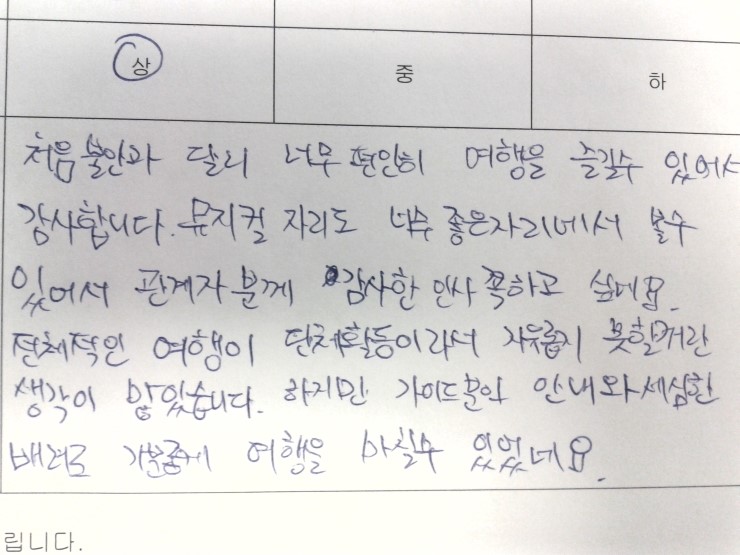 상 중 하
처음 불안과 달리 너무 편안히 여행을 즐길수 있어서
감사합니다. 뮤지컬 자리도 너무 좋은자리에서 볼수
있어서 관계자 분께 감사한 인사 꼭하고 싶네요.
전체적인 여행이 단체활동이라서 자유롭지 못할거란
생각이 많았습니다. 하지만 가이드분의 안내와 세심한
배려로 기분좋게 여행을 마칠수 있었네요.
립니다.